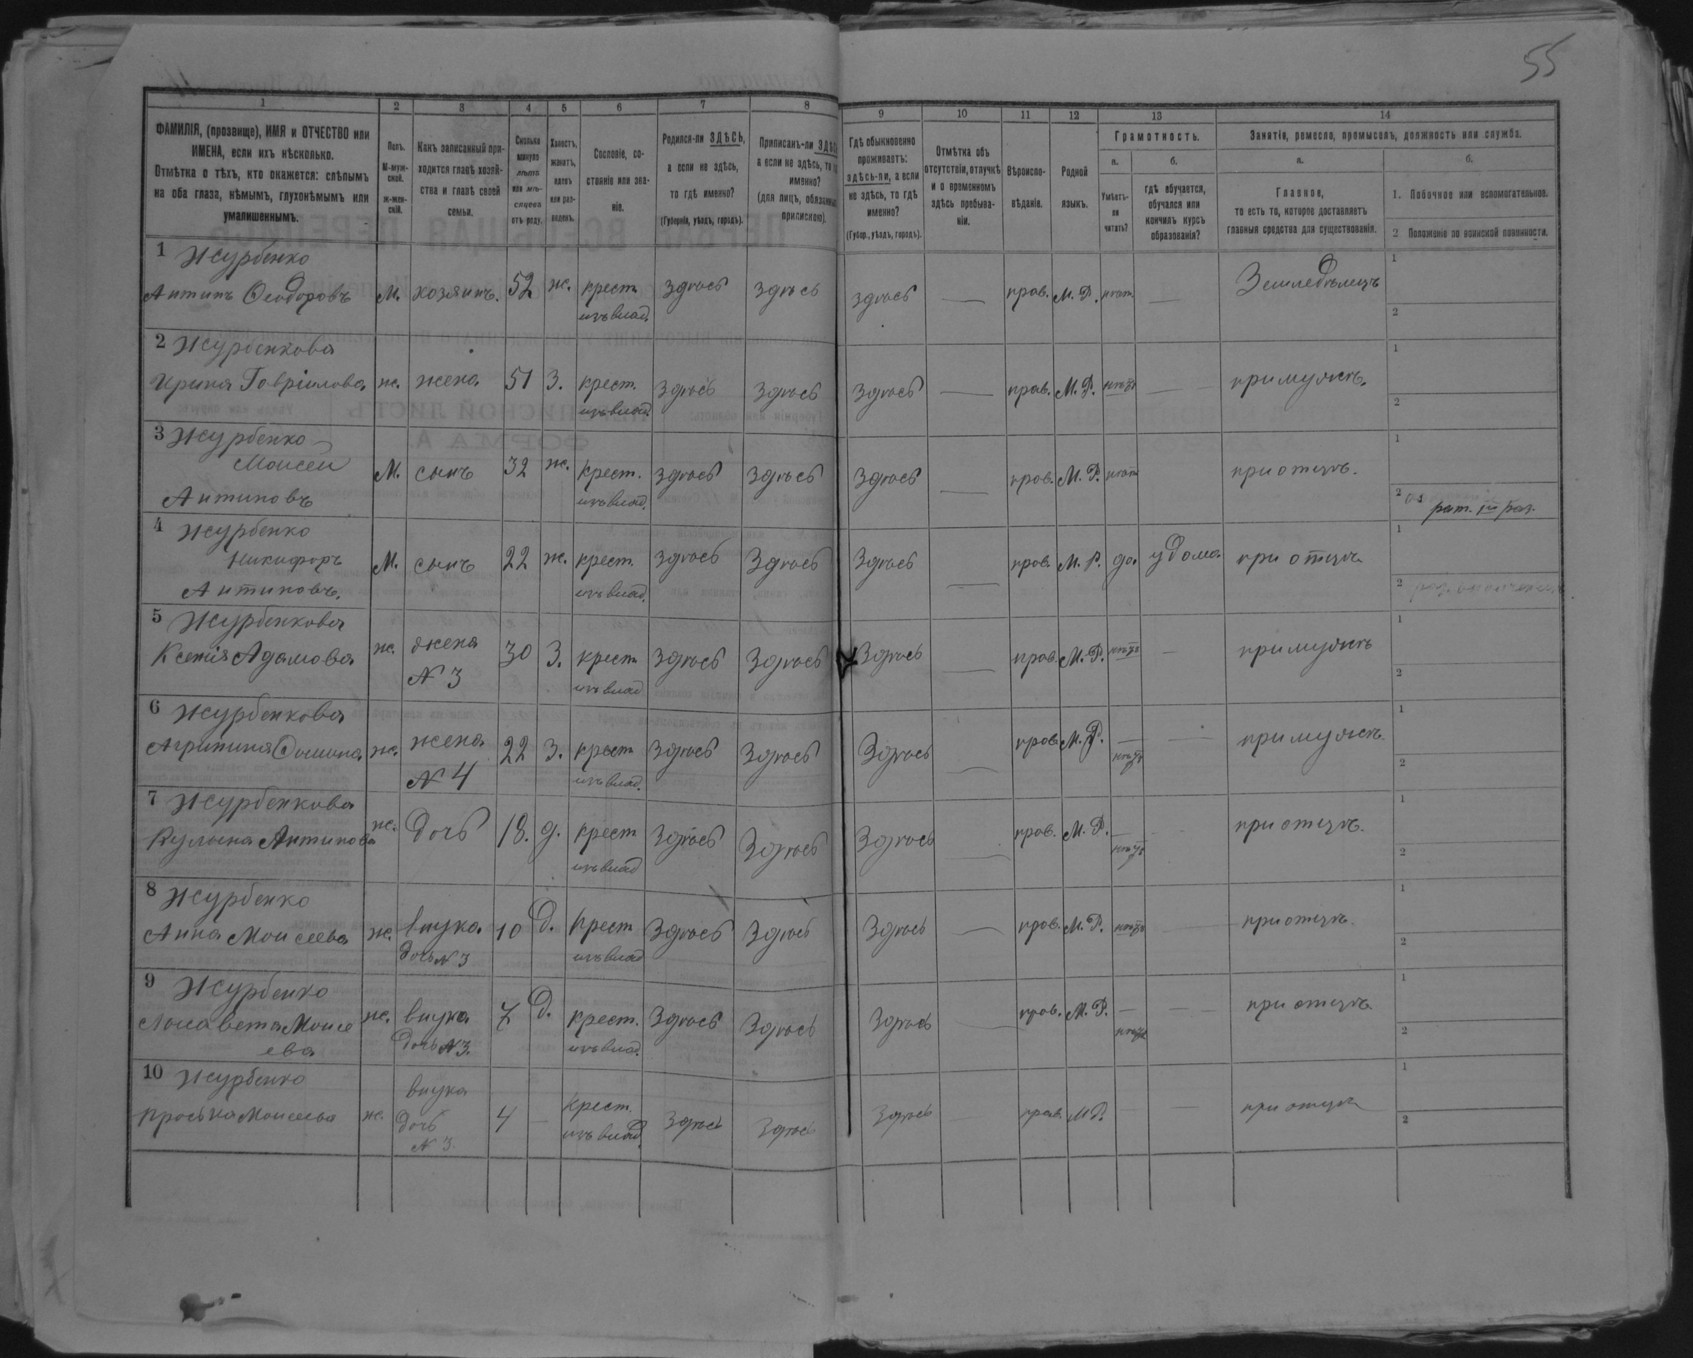 55
1 2 3 4 5 6 7 8 9 10 11 12 13 14
ФАМИЛІЯ, (прозвище), ИМЯ и ОТЧЕСТВО или
ИМЕНА, если ихъ нѣсколько.
Отмѣтка о тѣхъ, кто окажется: слѣпымъ
на оба глаза, нѣмымъ, глухонѣмымъ или
умалишеннымъ.
Полъ.
М-муж-
ской.
Ж-жен-
скій.
Какъ записанный при-
ходится главѣ хозяй-
ства и главѣ своей
семьи.
Сколько
минуло
лѣтъ
или мѣ-
сяцевъ
отъ роду.
Холостъ,
женатъ,
вдовъ
или раз-
веденъ.
Сословіе, со-
стояніе или зва-
ніе.
Родился-ли ЗДѢСЬ,
а если не здѣсь,
то гдѣ именно?
(Губернія, уѣздъ, городъ).
Приписанъ-ли ЗДѢСЬ,
а если не здѣсь, то гдѣ
именно?
(для лицъ, обязанныхъ
припискою).
Гдѣ обыкновенно
проживаетъ:
здѣсь-ли, а если
не здѣсь, то гдѣ
именно?
(Губер., уѣздъ, городъ).
Отмѣтка объ
отсутствіи, отлучкѣ
и о временномъ
здѣсь пребыва-
ніи.
Вѣроиспо-
вѣданіе.
Родной
языкъ.
Грамотность.
а.
Умѣетъ-
ли
читать?
б.
гдѣ обучается,
обучался или
кончилъ курсъ
образованія?
Занятія, ремесло, промыселъ, должность или служба.
а.
Главное,
то есть то, которое доставляетъ
главныя средства для существованія.
б.
1. Побочное или вспомогательное.
2 Положеніе по воинской повинности.
1 Журбенко
Антипъ Ѳеодоровъ м. хозяинъ. 52 ж. крест. здѣсь здѣсь здѣсь — прав. М. Р. нѣтъ — Земледѣлецъ 1
изъ влад. 2
2 Журбенкова
Ирина Гавріилова ж. жена 51 З. крест. здѣсь здѣсь здѣсь — прав. М. Р. нѣтъ — при мужѣ. 1
изъ влад. 2
3 Журбенко
Моисей М. сынъ 32 ж. крест. здѣсь здѣсь здѣсь — прав. М. Р. нѣтъ при отцѣ. 1
Антиповъ изъ влад. 2 рат. 1го раз.
4 Журбенко
Никифоръ М. сынъ 22 ж. крест. здѣсь здѣсь здѣсь — прав. М. Р. да у дома при отцѣ 1
Антиповъ. изъ влад. 2
5 Журбенкова
Ксенія Адамова ж. жена 30 З. крест. здѣсь здѣсь здѣсь — прав. М. Р. нѣтъ — при мужѣ 1
№ 3 изъ влад 2
6 Журбенкова
Агрипина ж. жена 22 З. крест здѣсь здѣсь здѣсь — прав. М. Р. — — при мужѣ. 1
№ 4 изъ влад. нѣтъ 2
7 Журбенкова
Антипова ж. дочь 18. д. крест здѣсь здѣсь здѣсь — прав. М. Р. — — при отцѣ. 1
изъ влад нѣтъ 2
8 Журбенко
Анна Моисеева ж. внука 10 д. крест здѣсь здѣсь здѣсь — прав. М. Р. нѣтъ — при отцѣ. 1
дочь № 3 изъ влад 2
9 Журбенко
Лисавета Моисе ж. внука 7 д. крест. здѣсь здѣсь здѣсь — прав. М. Р. — — при отцѣ. 1
ева дочь № 3. изъ влад. нѣтъ 2
10 Журбенко внука
Просына Моисеева ж. дочь 4 — крест. здѣсь здѣсь здѣсь прав. М. Р. — — при отцѣ 1
№ 3. изъ влад. 2